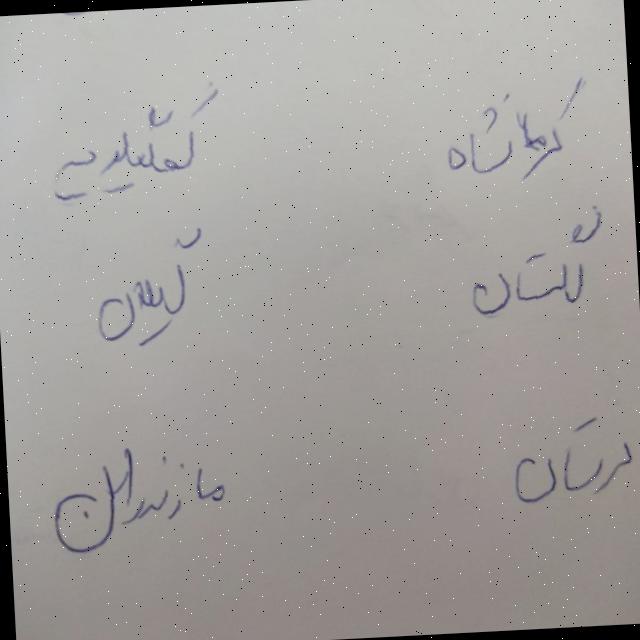 کرمانشاه کهگیلویه
گلستان گیلان
لرستان مازندران